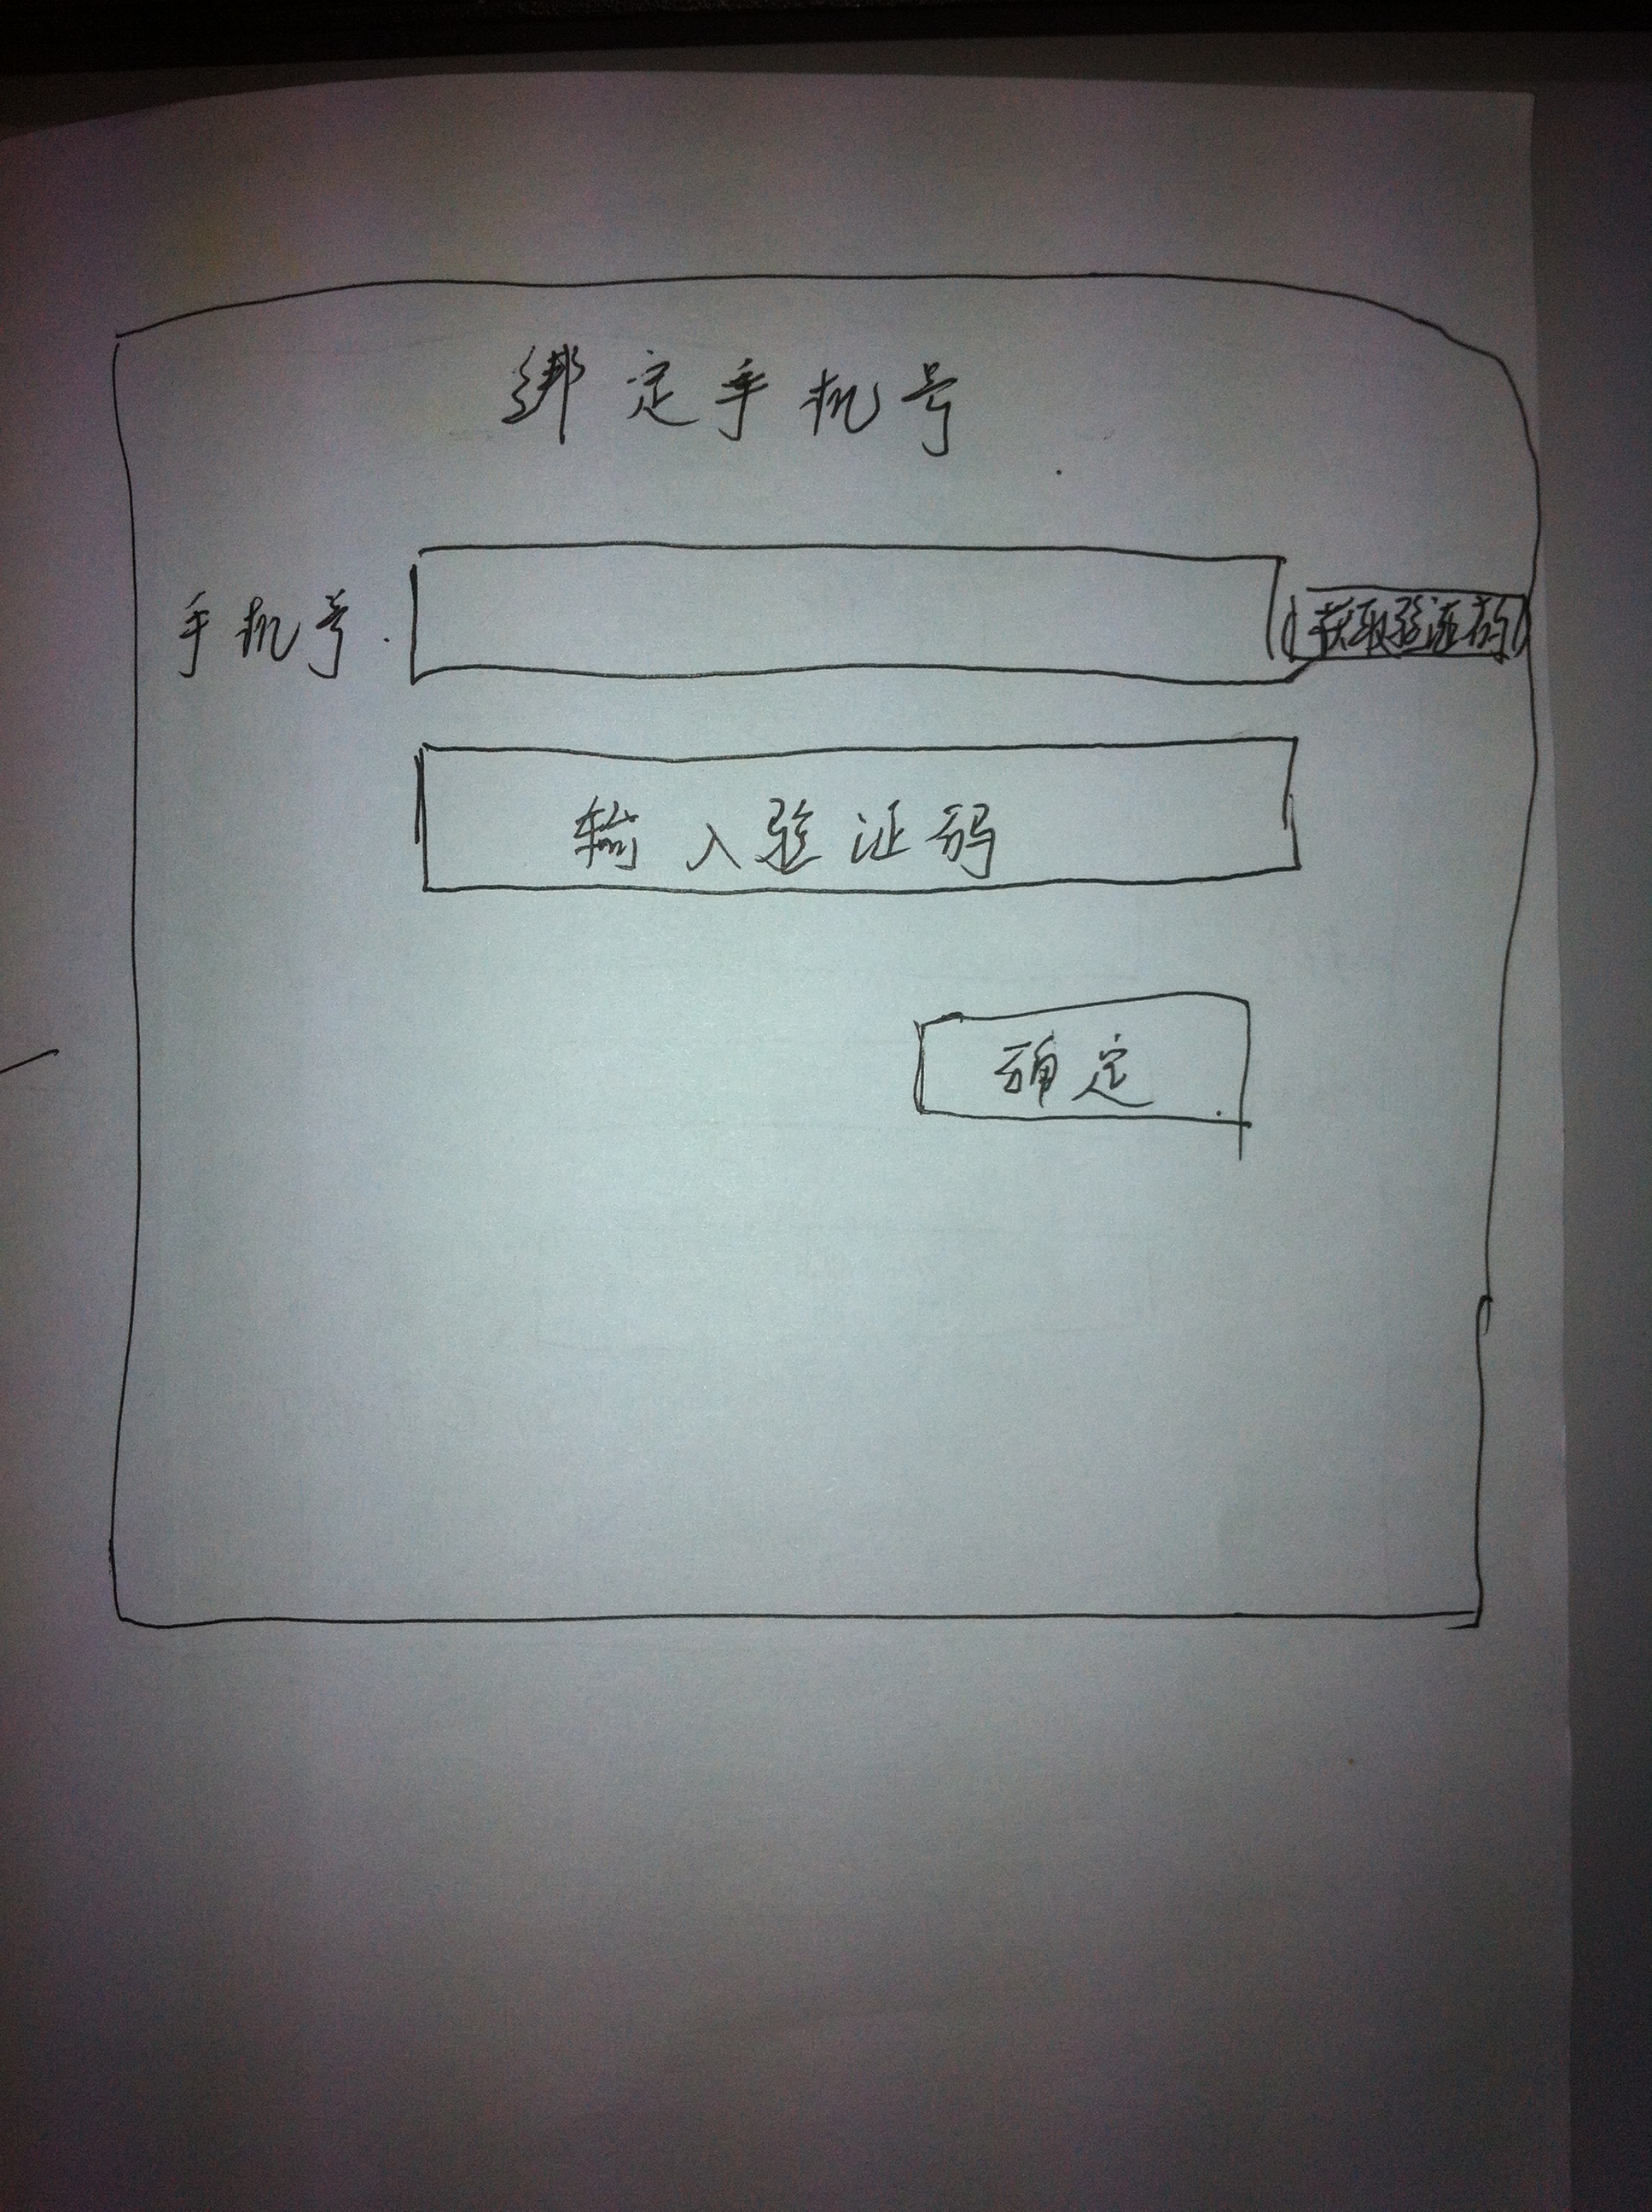 绑定手机号
手机号 获取验证码
输入验证码
确定